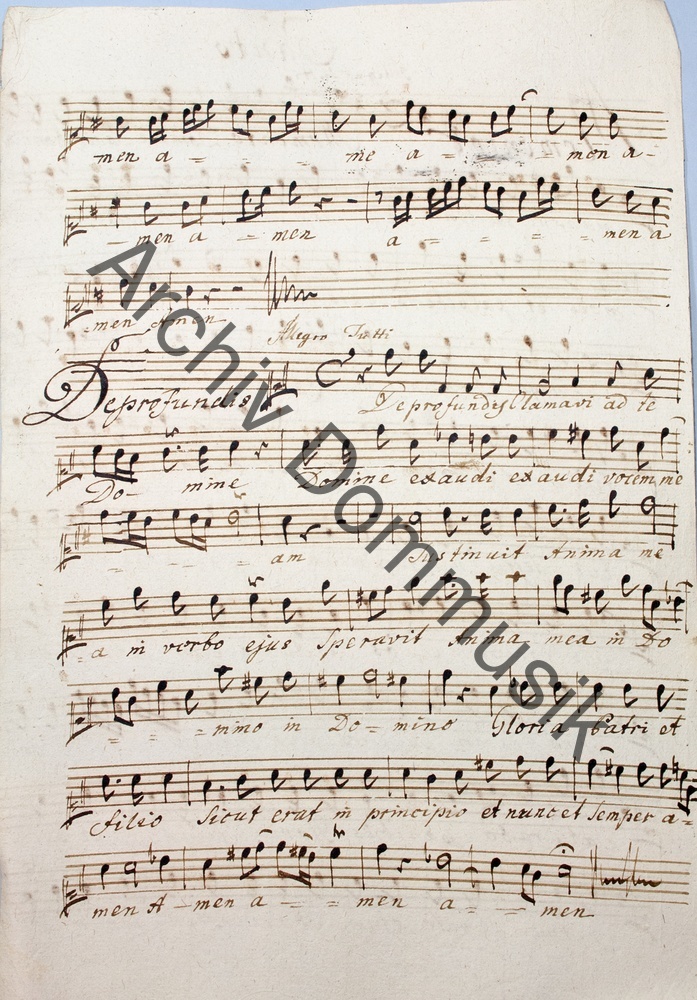 men a - = = = me a - = = men a -
- men a - men a = = = = men a
= men Amen
Allegro Tutti
De profundis
De profundis Clamavi ad te
Do - mine Domine exaudi exaudi vocem me
= = = = am Sustinuit Anima me
= a in verbo ejus Speravit Anima mea in Do
= = = mino in Do = mino Gloria Patri et
filio Sicut erat in principio et nunc et Semper a =
men A - men a - - men a - - men
Archiv Dommusik